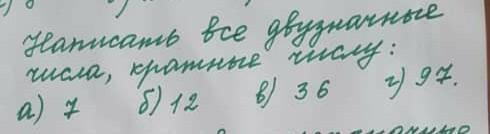 Написать все двузначные
числа, кратные числу:
а) 7 б) 12 в) 36 г) 97.